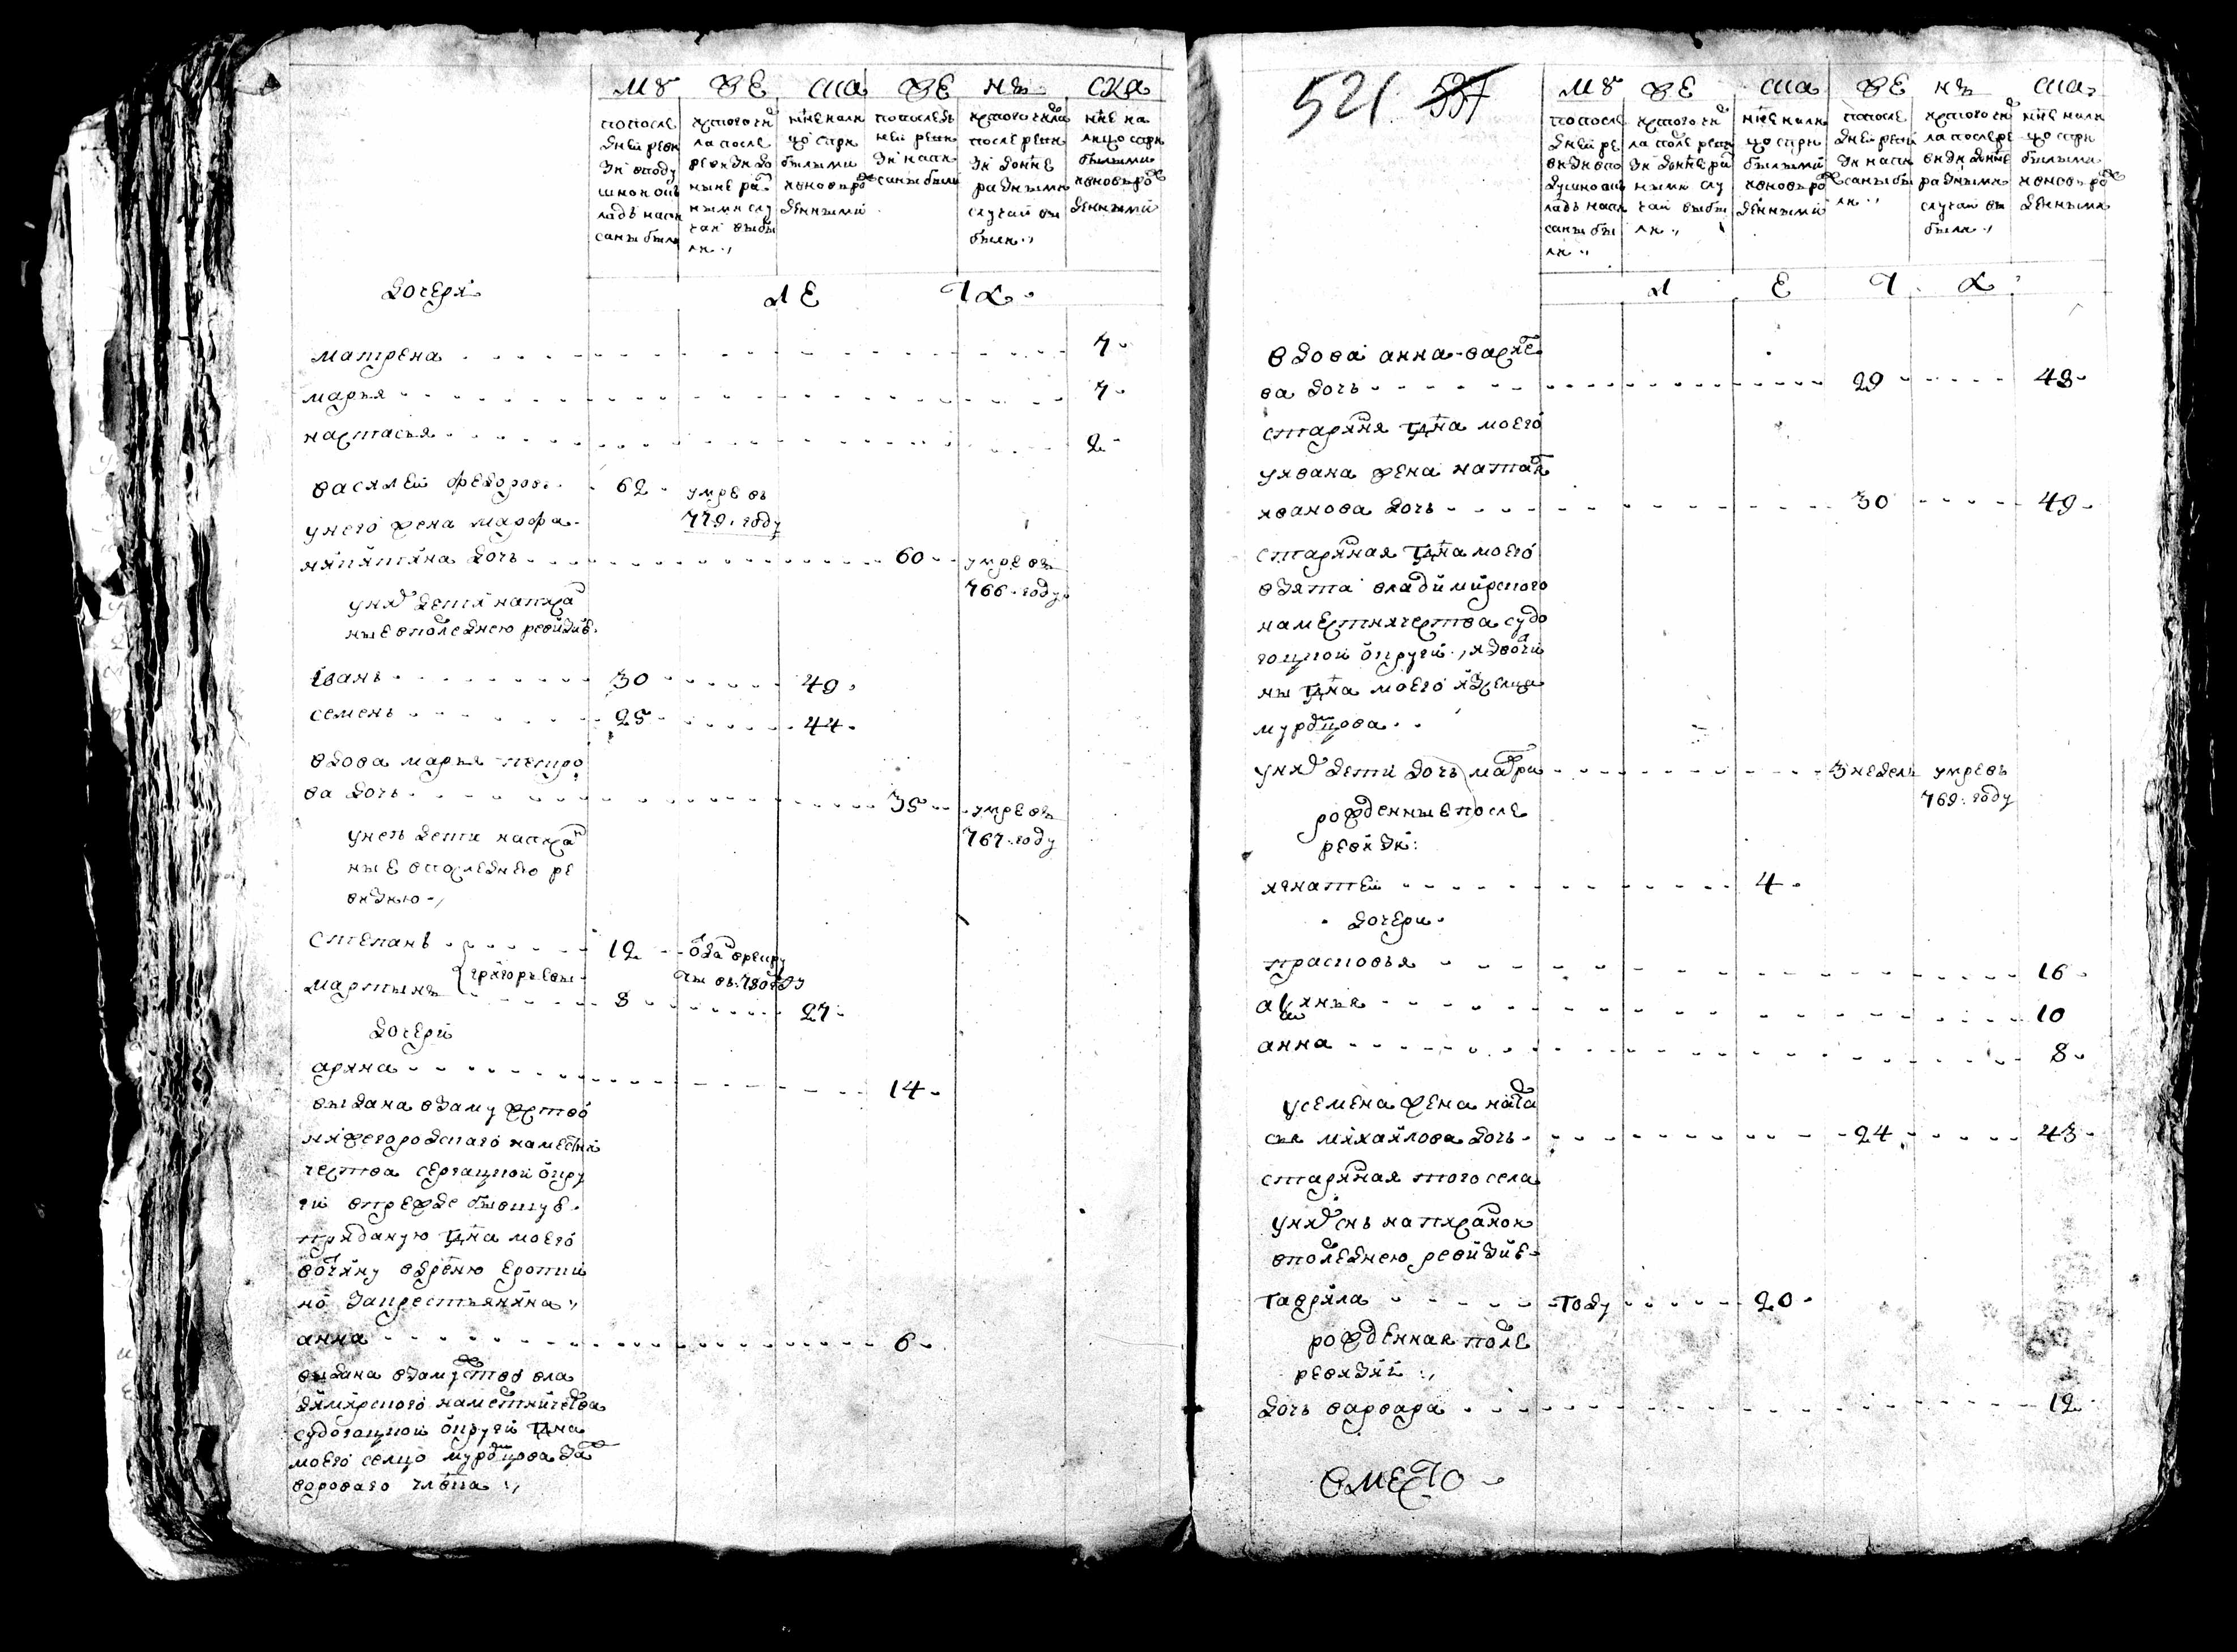 му же ска же нъ ска
попосле
дней реви
зи вподу
шном ок
ладъ напи
саны были
ис того чи
ла после
ревизи до
ныне раз
ными слу
чаи выбы
ли
ныне нали
цо спри
былыми
и вновь рож
денными
попоследъ
ней реви
зи напи
саны были
ис того числа
после реви
зи доныне
разными
случаи вы
были
ныне на
лицо спри
былыми
и вновь рож
денными
дочери
ле ча
матрена 7
марья 7
настасья 2
василей федоровъ 62 умре въ
779 году
унего жена марфа
никитина дочь 60 умре въ
766 году
уних дети написа
ные впоследнею ревизию
иванъ 30 49
семенъ 25 44
вдова марья петро
ва дочь 35 умре въ
767 году
унеъ дети написан
ные впоследнею ре
визию
степанъ 12 отдан врекру
ты въ 780 году
григорьевы
мартынъ 8 27
дочери
арина 14
выдана взамужство
нижегородскаго наместни
чества сергацкой окру
ги впрежде бывшую
приданую гдна моего
вотчину вдревню еропки
но закрестьянина
анна 6
выдана взамужство вла
димирского наместничества
судогацкой округи гдна
моего селцо мурдцова за
дороваго члвка
521 337
му же ска же нъ ска
попосле
дней ре
визи впо
душно ок
ладъ напи
саны бы
ли
ис того чи
ла после реви
зи доныне ра
ными слу
чаи выбы
ли
ныне нали
цо спри
былыми
и вновь рож
денными
попосле
дней реви
зи напи
саны бы
ли
ис того чис
ла после ре
визи доныне
разными
случаи вы
были
ныне нали
цо спри
былыми
и вновь рож
денными
л е ч а
вдова анна васиље
ва дочь 29 48
старинная гдна моего
уивана жена наталья
иванова дочь 30 49
старинная гдна моего
взята владимирского
наместничества судо
гоцкой округи извотчи
ны гдна моего изселца
мурдцова
уних дети дочь мавра 3 недель умре въ
769 году
рожденные после
ревизи
игнатей 4
дочери
прасковья 16
аксинья 10
анна 8
усемена жена ната
лья михайлова дочь 24 43
старинная того села
уних снъ написанои
впоследнею ревизию
гаврила году 20
рожденная после
ревизии
дочь варвара 12
вместо